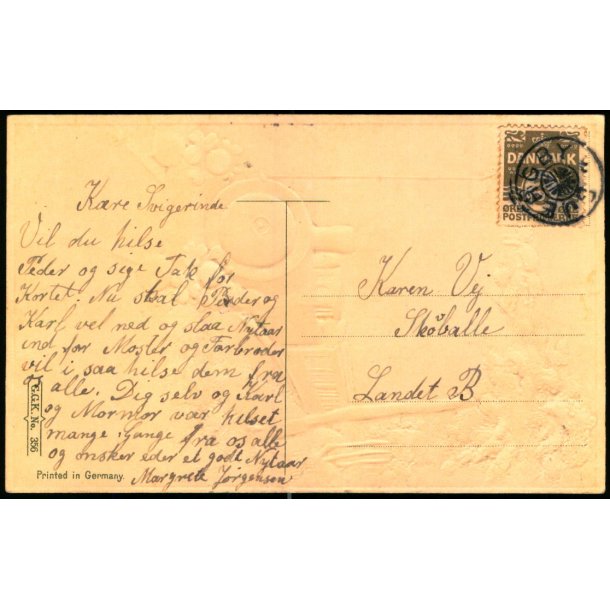 Kære Svigerinde
Vil du hilse
Peder og sige Tak for
Kortet. Nu skal Peder og
Karl vel ned og slaa Nytaar
ind for Moster og Farbroder
vil i saa hilse dem fra
os alle. Dig selv og Karl
og Mormor vær hilset
mange Gange fra os alle
og ønsker eder et godt Nytaar
Margrete Jørgensen
G.G.K. No. 356
Printed in Germany.
DANMARK
ØRE
POSTFRIMÆRKE
Karen Vej
Skóballe
Landet B